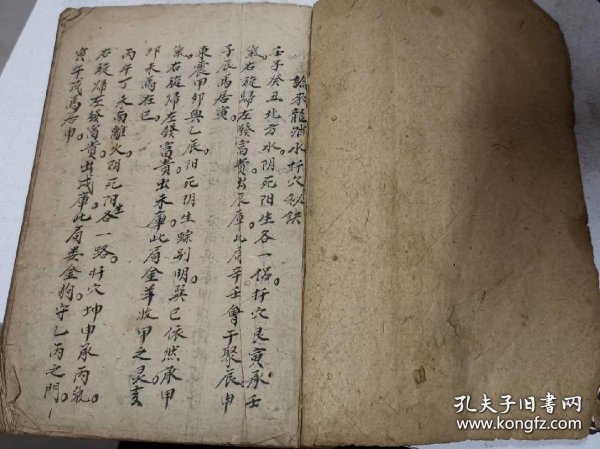 論來龍消水扦穴秘訣
壬子癸丑北方水阴死阳生各一侶扦穴艮寅承壬
氣右旋歸左發富貴出辰庫此局辛壬會于聚辰申
子辰馬居寅
東震甲卯與乙辰阳死阴生踪别明巽巳依然承甲
氣右旋歸左發富貴出未庫此局金羊收甲之灵亥
卯未馬在巳
丙午丁未南離火阴死阳生各一路扦穴坤申承丙氣
右旋歸左發富貴出戍庫此局委金狗守乙丙之門
寅午戍馬居申
孔夫子旧书网
www.kongfz.com